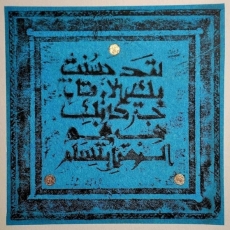 لقد حسنت
بك الاوقات
حتى كانك
في فم
الدهر ابتسام